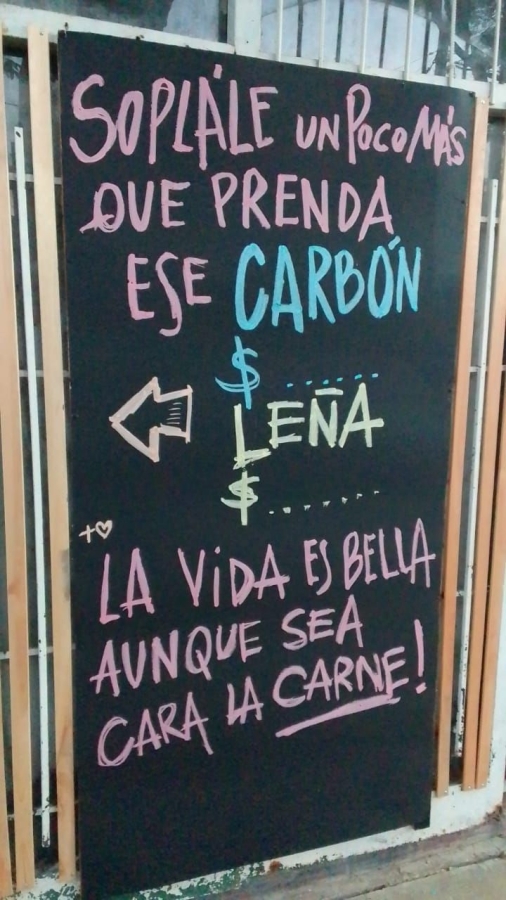 SOPLÁLE UN POCO MÁS
QUE PRENDA
ESE CARBÓN
$ .......
LEÑA
$ .........
+♡
LA ViDA ES BELLA
AUNQUE SEA
CARA LA CARNE!